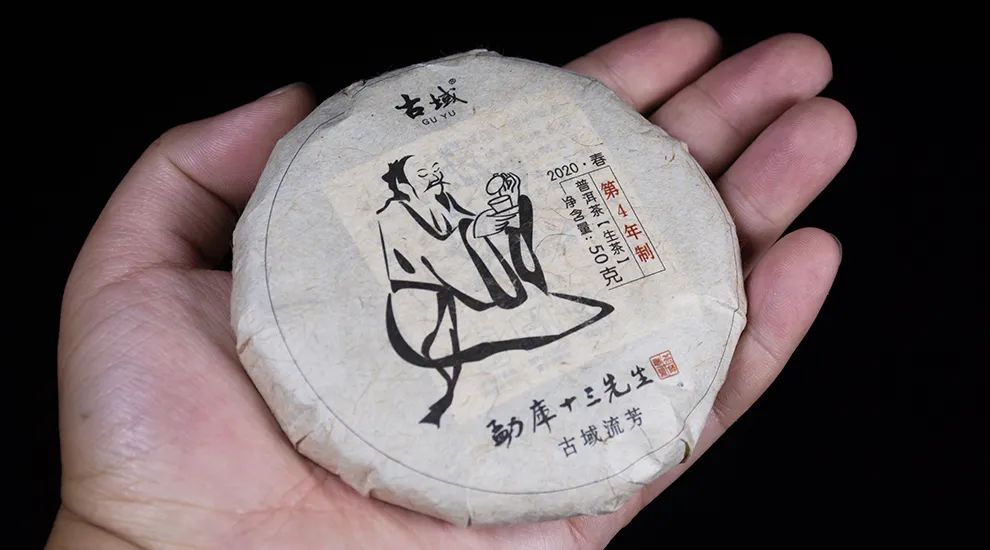 古域®
GU YU
2020·春
第4年制
普洱茶【生茶】
净含量:50克
勐库十三先生
古域流芳